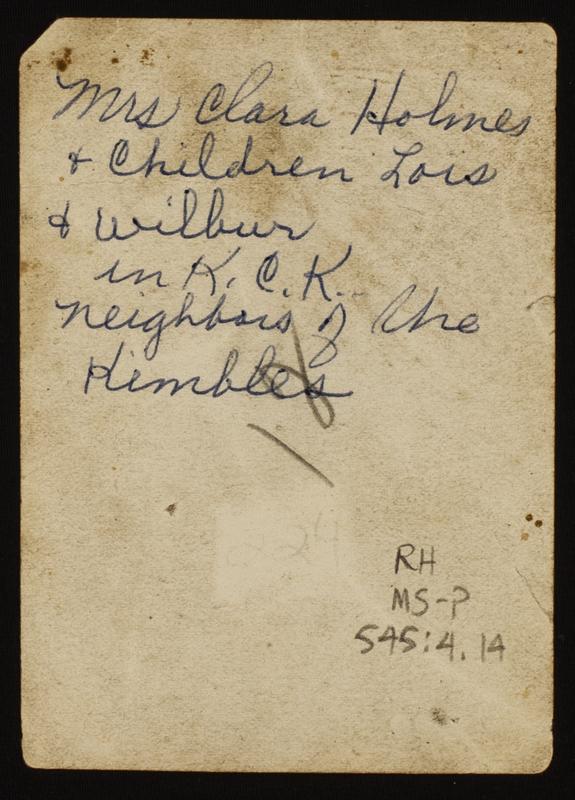 Mrs Clara Holmes
& Children Lois
& Wilbur
in K. C. K.
neighbors of the
Kimbles
RH
MS-P
545:4.14